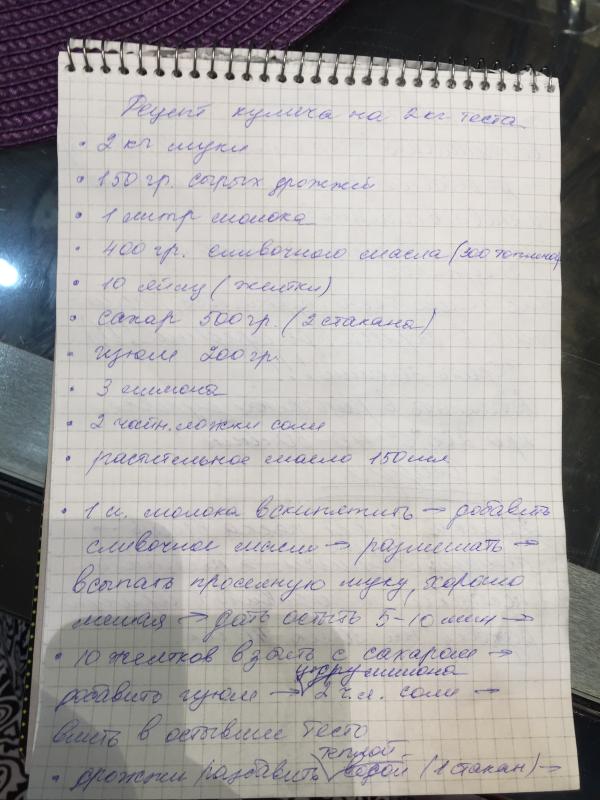 Рецепт кулича на 2 кг теста
• 2 кг муки
• 150 гр. сырых дрожжей
• 1 литр молока
• 400 гр. сливочного масла (300 топленого
• 10 яйиц (желтки)
• сахар 500 гр. (2 стакана)
• изюм 200 гр.
• 3 лимона
• 2 чайн. ложки соли
• растительное масло 150 мл
• 1 л. молока вскипятить → добавить
сливочное масло → размешать →
всыпать просеяную муку, хорошо
мешая → дать остыть 5-10 мин →
• 10 желтков взбить с сахаром →
цедру лимона
добавить изюм → 2 ч.л. соли →
влить в остывшее тесто
теплой
• дрожжи разбавить водой (1 стакан) →